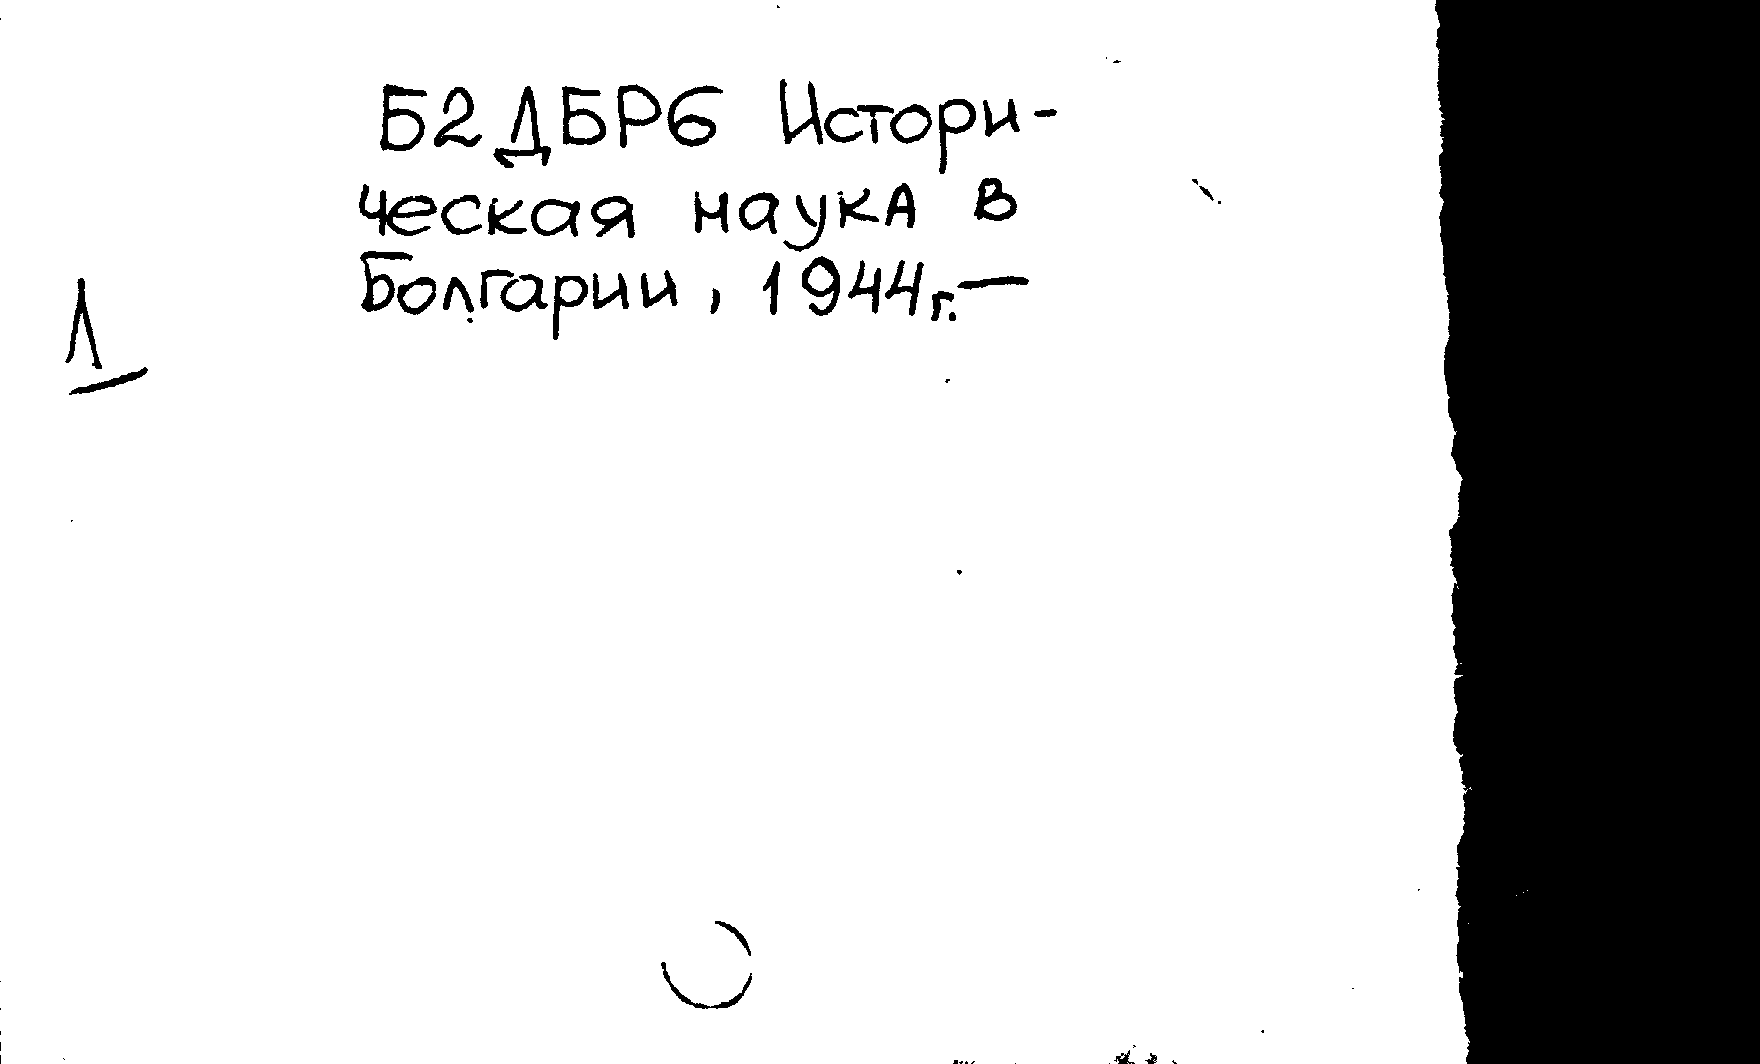 Б2ДБР6 Истори-
ческая наука в
Болгарии, 1944г.—
Л